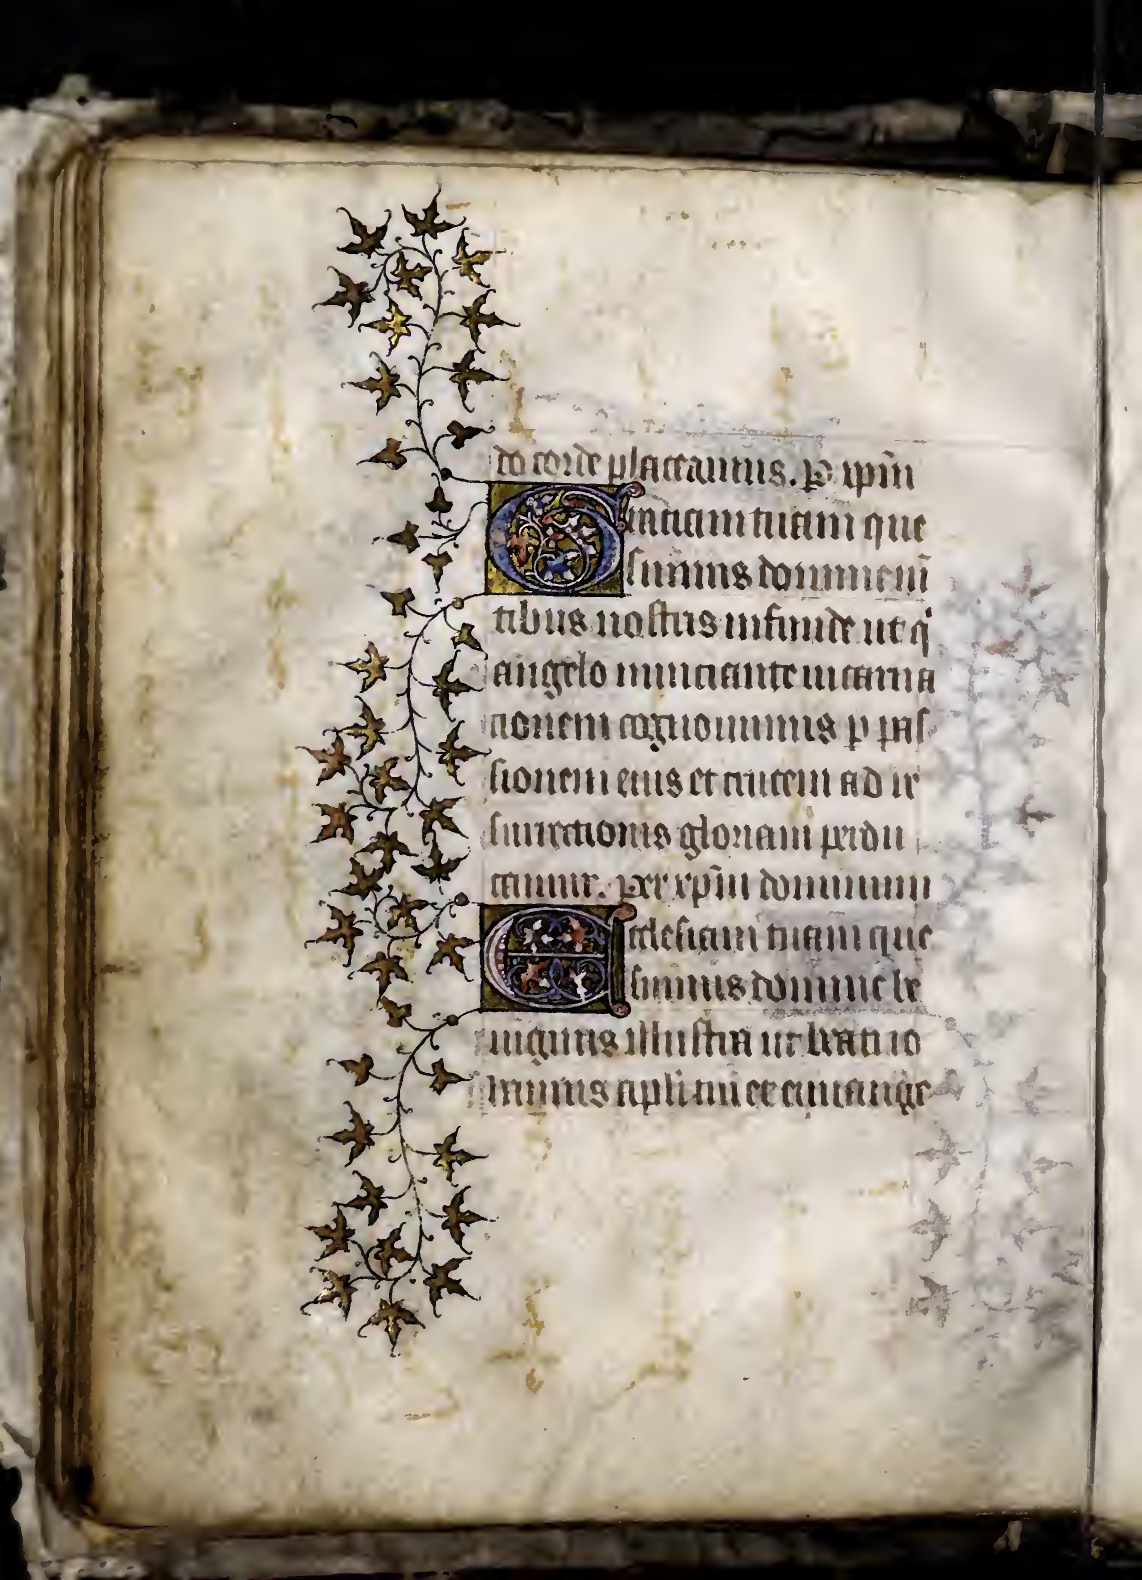 do corde placeamus. p xp̄m
Gratiam tuam que
sumus domine m̄
tibus nostris infunde ut q
angelo nunciante incarna
tionem cognouimus p pas
sionem eius et crucem ad re
surrectionis gloriam perdu
camur. per xp̄m dominum
Ecclesiam tuam que
sumus domine be
nignus illustra ut beati io
hannis apl̄i tui et euuange